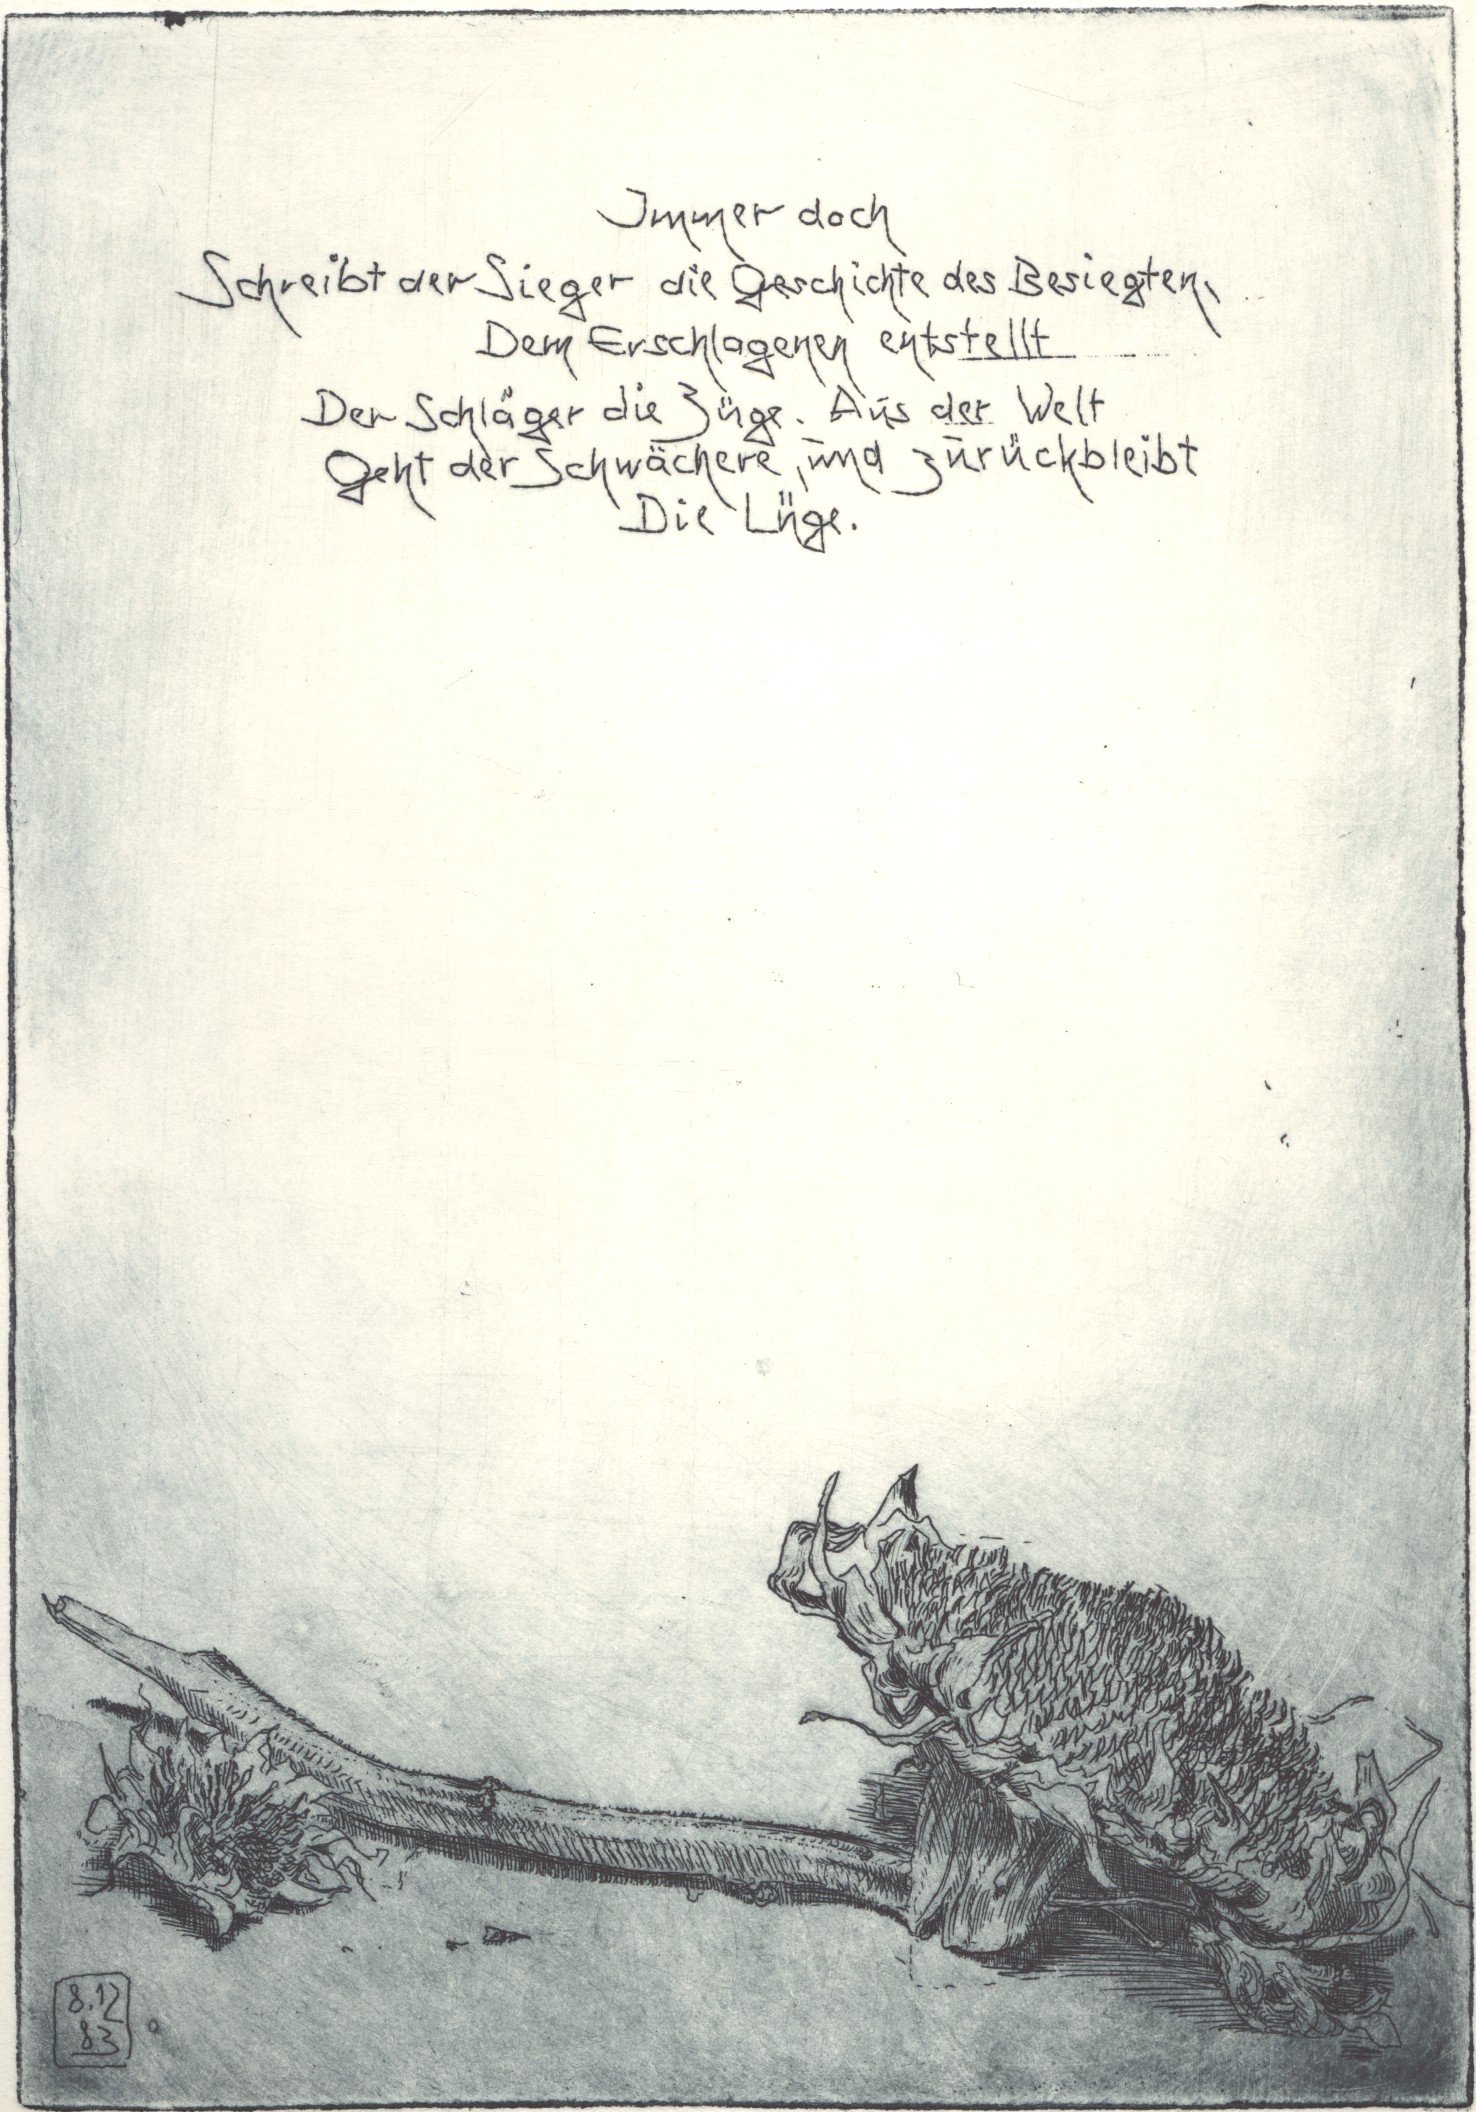 Immer doch
Schreibt der Sieger die Geschichte des Besiegten,
Dem Erschlagenen entstellt
Der Schläger die Züge. Aus der Welt
Geht der Schwächere, und zurückbleibt
Die Lüge.
8.12
83